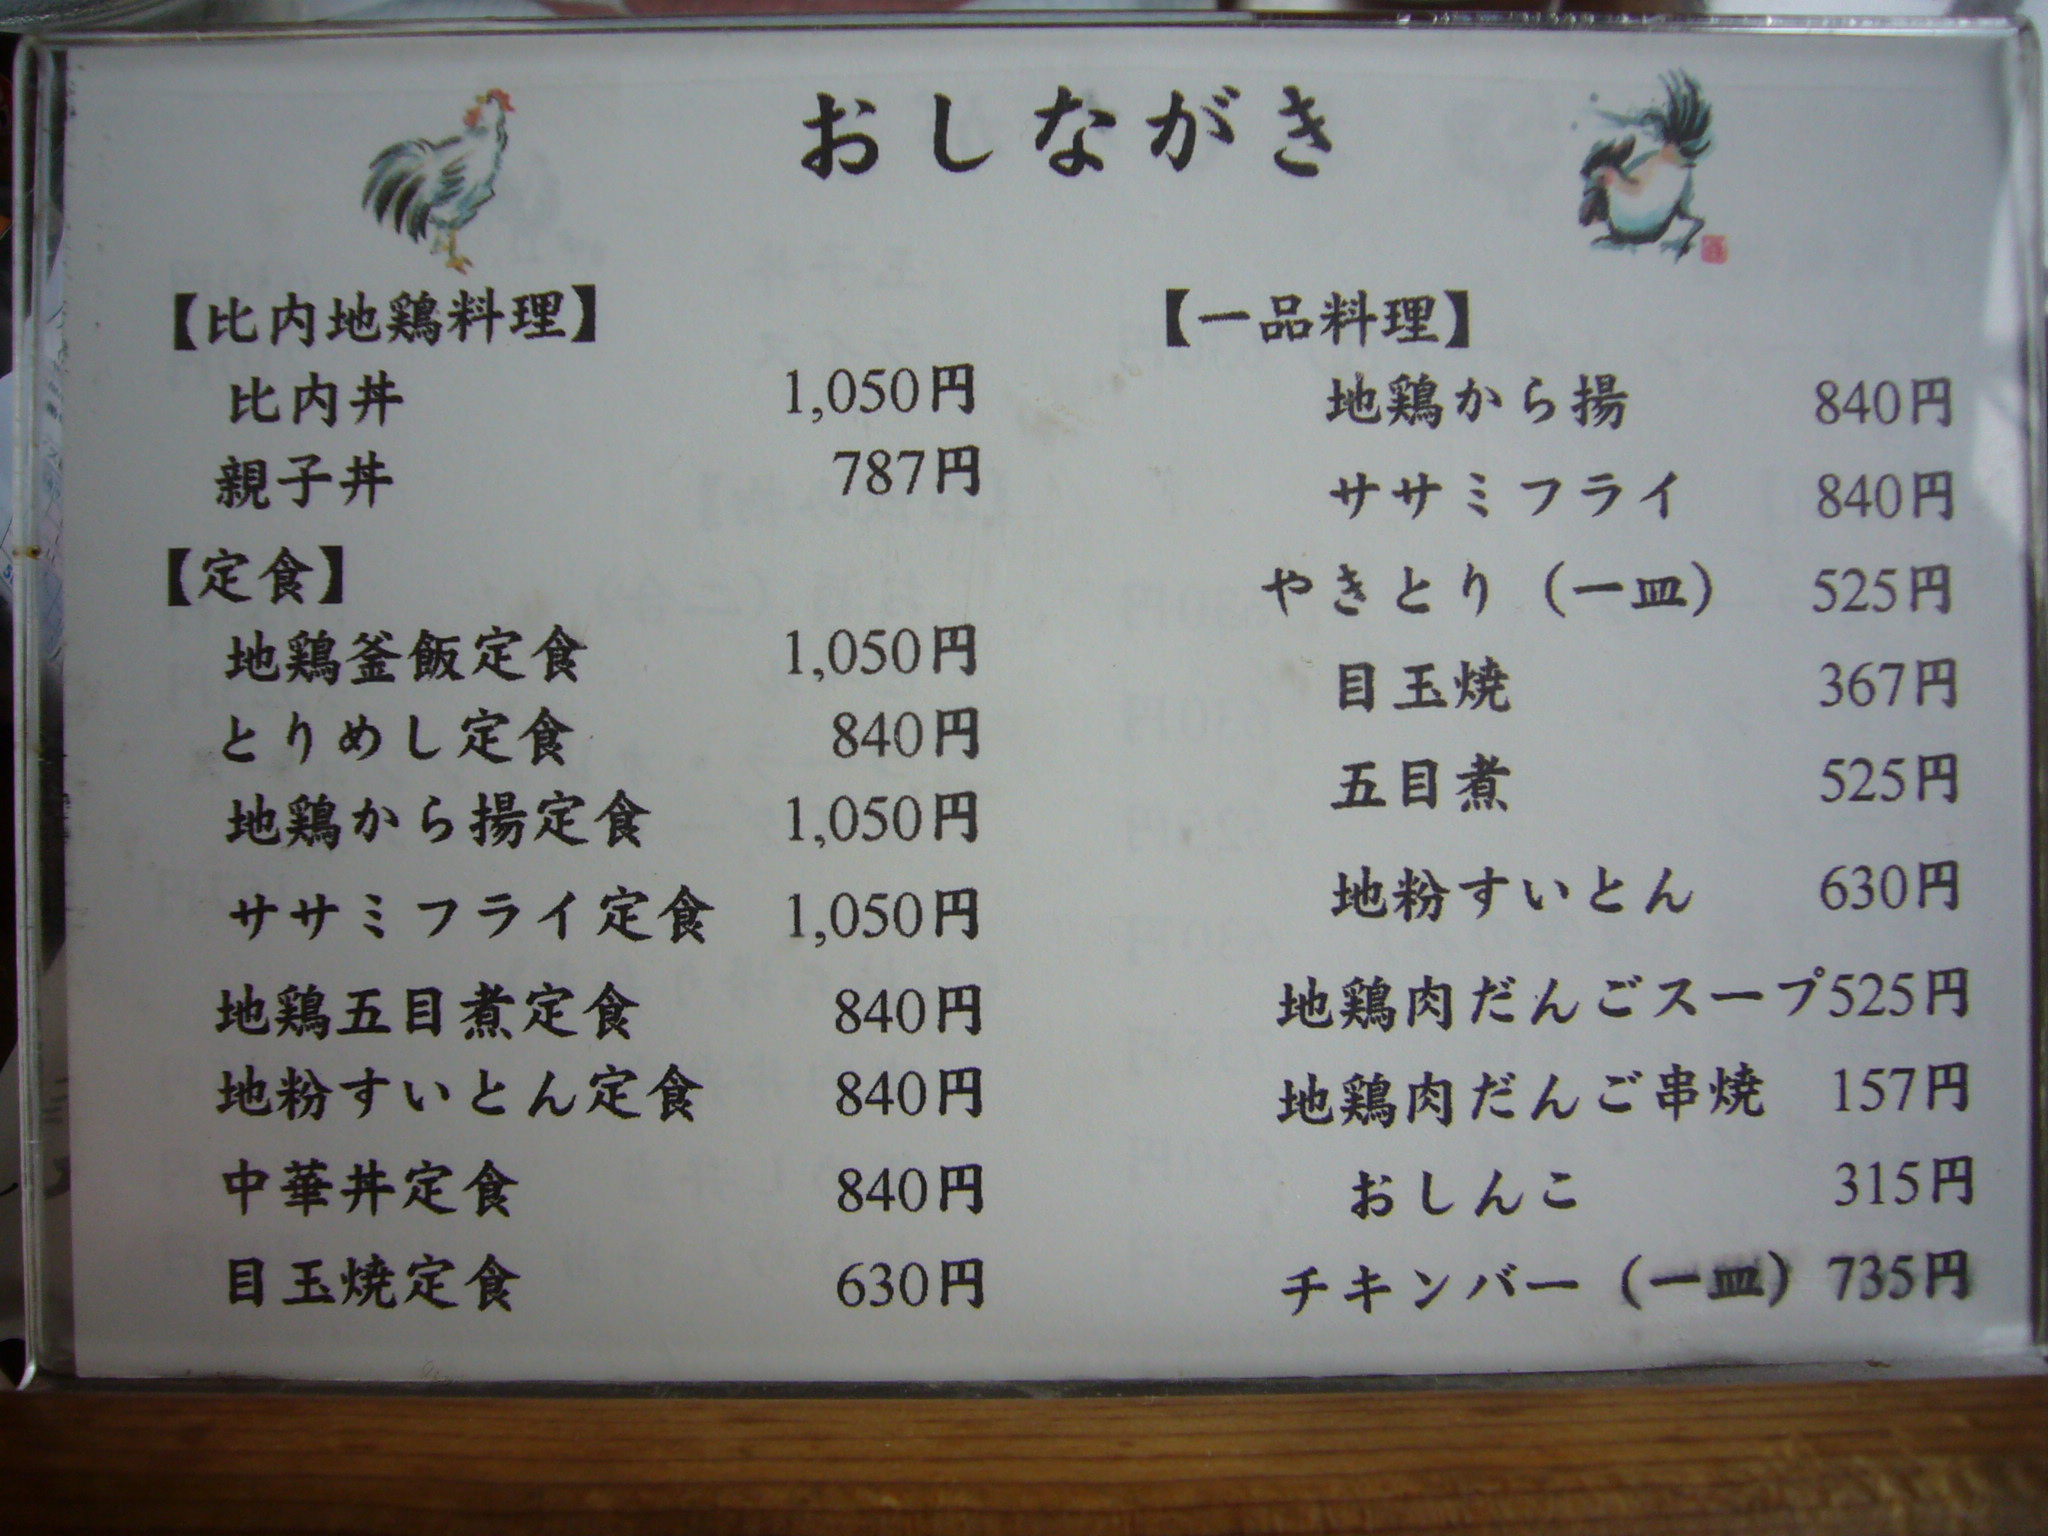 おしながき
【比内地鶏料理】
比内丼 1,050円
親子丼 787円
【定食】
地鶏釜飯定食 1,050円
とりめし定食 840円
地鶏から揚定食 1,050円
ササミフライ定食 1,050円
地鶏五目煮定食 840円
地粉すいとん定食 840円
中華丼定食 840円
目玉焼定食 630円
【一品料理】
地鶏から揚 840円
ササミフライ 840円
やきとり（一皿） 525円
目玉焼 367円
五目煮 525円
地粉すいとん 630円
地鶏肉だんごスープ525円
地鶏肉だんご串焼 157円
おしんこ 315円
チキンバー（一皿） 735円